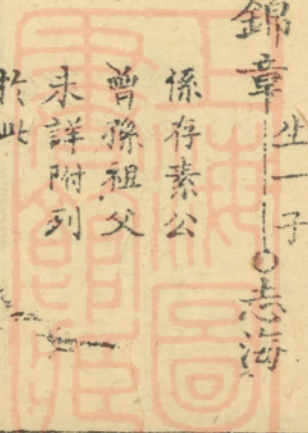 錦章 生一子 志海
係存素公
曾孫祖父
未詳附列
於此